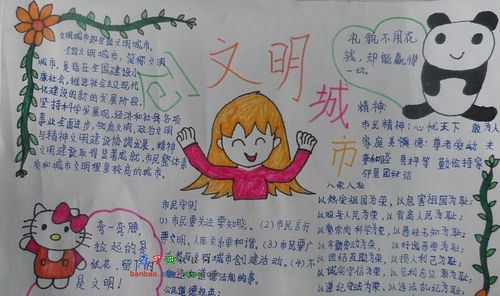 创文明城市
文明城市即全国文明城市。
全国文明城市,简称文明
城市,是指在全国建设小
康社会,推进社会主义现代
化建设的新的发展阶段,
坚持科学发展观,经济和社会各项
事业全面进步,物质文明、政治文明
与精神文明建设协调发展,精神
文明建设取得显著成就,市民整体素
质和城市文明程度较高的城市。
礼貌不用花
钱,却能赢得
一切。
精神:
市民精神:心忧天下 敢为人
家庭美德:尊老爱幼
勤俭持家
邻里团结
八荣八耻
以热爱祖国为荣,以危害祖国为耻;
以服务人民为荣,以背离人民为耻;
以崇尚科学为荣,以愚昧无知为耻;
以辛勤劳动为荣,以好逸恶劳为耻;
以团结互助为荣,以损人利己为耻;
以诚实守信为荣,以见利忘义为耻;
以遵纪守法为荣,以违法乱纪为耻;
弯一弯腰,
捡起的是
纸花,留下的
是文明!
市民守则
(1)市民要关注要知晓。(2)市民言行
要文明、人际关系要和谐。(3)市民要
文明城市创建活动。(4)不
做
公民道德规范:
baobao